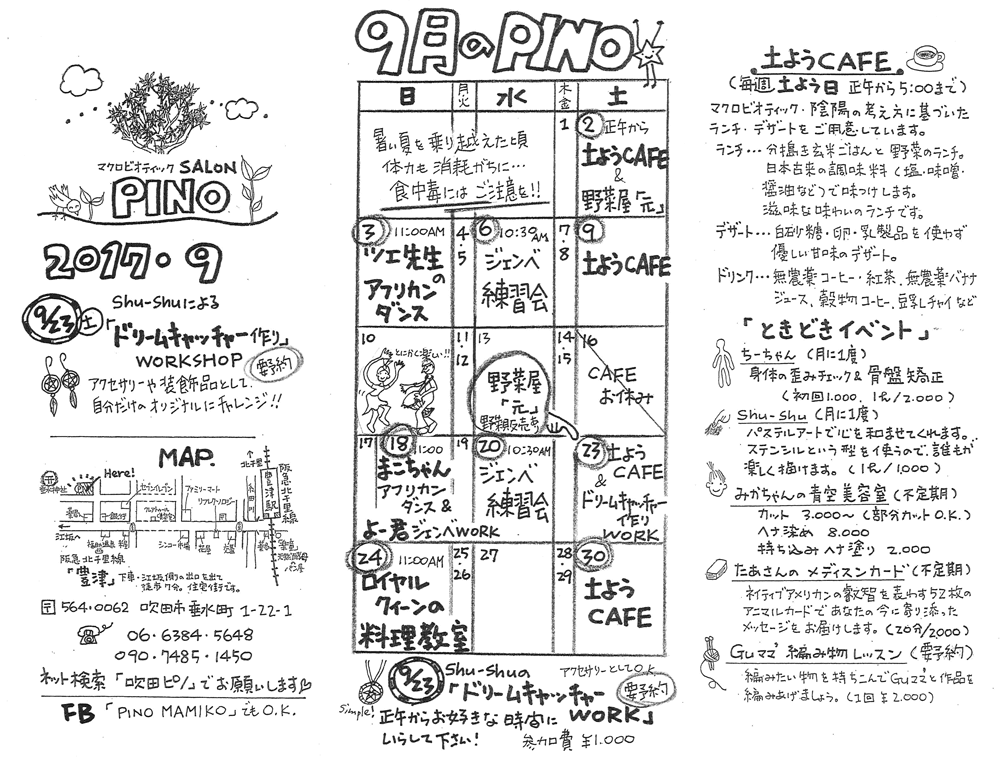 マクロビオティック SALON
PINO
2017・9
9/23 土
Shu-Shuによる
「ドリームキャッチャー作り」
WORKSHOP 要予約
アクセサリーや装飾品として、
自分だけのオリジナルにチャレンジ!!
MAP.
Here!
PINO
セブンイレブン
ファミリーマート
北千里
阪急北千里線
豊津駅
江坂へ
阪急北千里線
「豊津」下車・江坂側の出口を出て
徒歩7分。住宅街です。
〒564・0062 吹田市垂水町 1-22-1
06・6384・5648
090・7485・1450
ネット検索「吹田ピノ」でお願いします
FB「PINO MAMIKO」でもO.K.
9月のPINO
日 月火 水 木金 土
暑い夏を乗り越えた頃
体力も消耗がちに…
食中毒にはご注意を!!
1
2 正午から
土ようCAFE
&
野菜屋「元」
3 11:00AM
ツエ先生の
アフリカン
ダンス
4・5
6 10:30AM
ジェンベ
練習会
7・8
9
土ようCAFE
10
とにかく楽しい!!
11・12
13
野菜屋
「元」
野菜販売有
14・15
16
CAFE
お休み
17
18 11:00
まこちゃん
アフリカン
ダンス &
よー君ジェンベWORK
19
20 10:30AM
ジェンベ
練習会
23 土よう
CAFE
&
ドリームキャッチャー
作り
WORK
24 11:00AM
ロイヤル
クィーンの
料理教室
25・26
27
28・29
30
土よう
CAFE
Simple!
9/23
Shu-Shuの アクセサリーとしてO.K.
「ドリームキャッチャー 要予約
WORK」
正午からお好きな時間に
いらして下さい! 参加費 ¥1.000
土ようCAFE
(毎週 土よう日 正午から5:00まで)
マクロビオティック・陰陽の考え方に基づいた
ランチ・デザートをご用意しています。
ランチ…分搗き玄米ごはんと野菜のランチ。
日本古来の調味料(塩・味噌・
醤油など)で味つけします。
滋味な味わいのランチです。
デザート…白砂糖・卵・乳製品を使わず
優しい甘味のデザート。
ドリンク…無農薬コーヒー・紅茶、無農薬バナナ
ジュース、穀物コーヒー、豆乳チャイなど
「ときどきイベント」
ちーちゃん(月に1度)
身体の歪みチェック&骨盤矯正
(初回1.000、1h/2.000)
Shu-Shu(月に1度)
パステルアートで心を和ませてくれます。
ステンシルという型を使うので、誰もが
楽しく描けます。(1h/1,000)
みかちゃんの青空美容室(不定期)
カット 3.000〜(部分カットO.K.)
ヘナ染め 8.000
持ち込みヘナ塗り 2.000
たあさんのメディスンカード(不定期)
ネイティブアメリカンの叡智を表わす52枚の
アニマルカードであなたの今に寄り添った
メッセージをお届けします。(20分/2000)
Guママ 編み物レッスン(要予約)
編みたい物を持ちこんでGuママと作品を
編みあげましょう。(1回¥2.000)